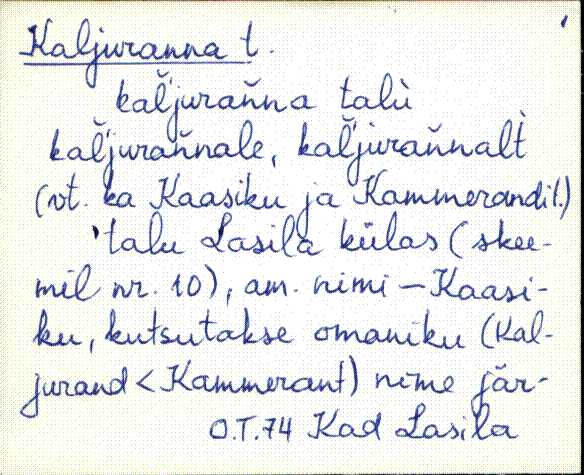 Kaljuranna t.
kaľ̆jurañ̆na talù
kaľ̆jurañ̆nale, kaľ̆jurañ̆nalt̀
(vt. ka Kaasiku ja Kammerandi t.)
talu Lasila külas (skee-
mil nr. 10), am. nimi – Kaasi-
ku, kutsutakse omaniku (Kal-
jurand < Kammerant) nime jär-
O.T.74 Kad Lasila